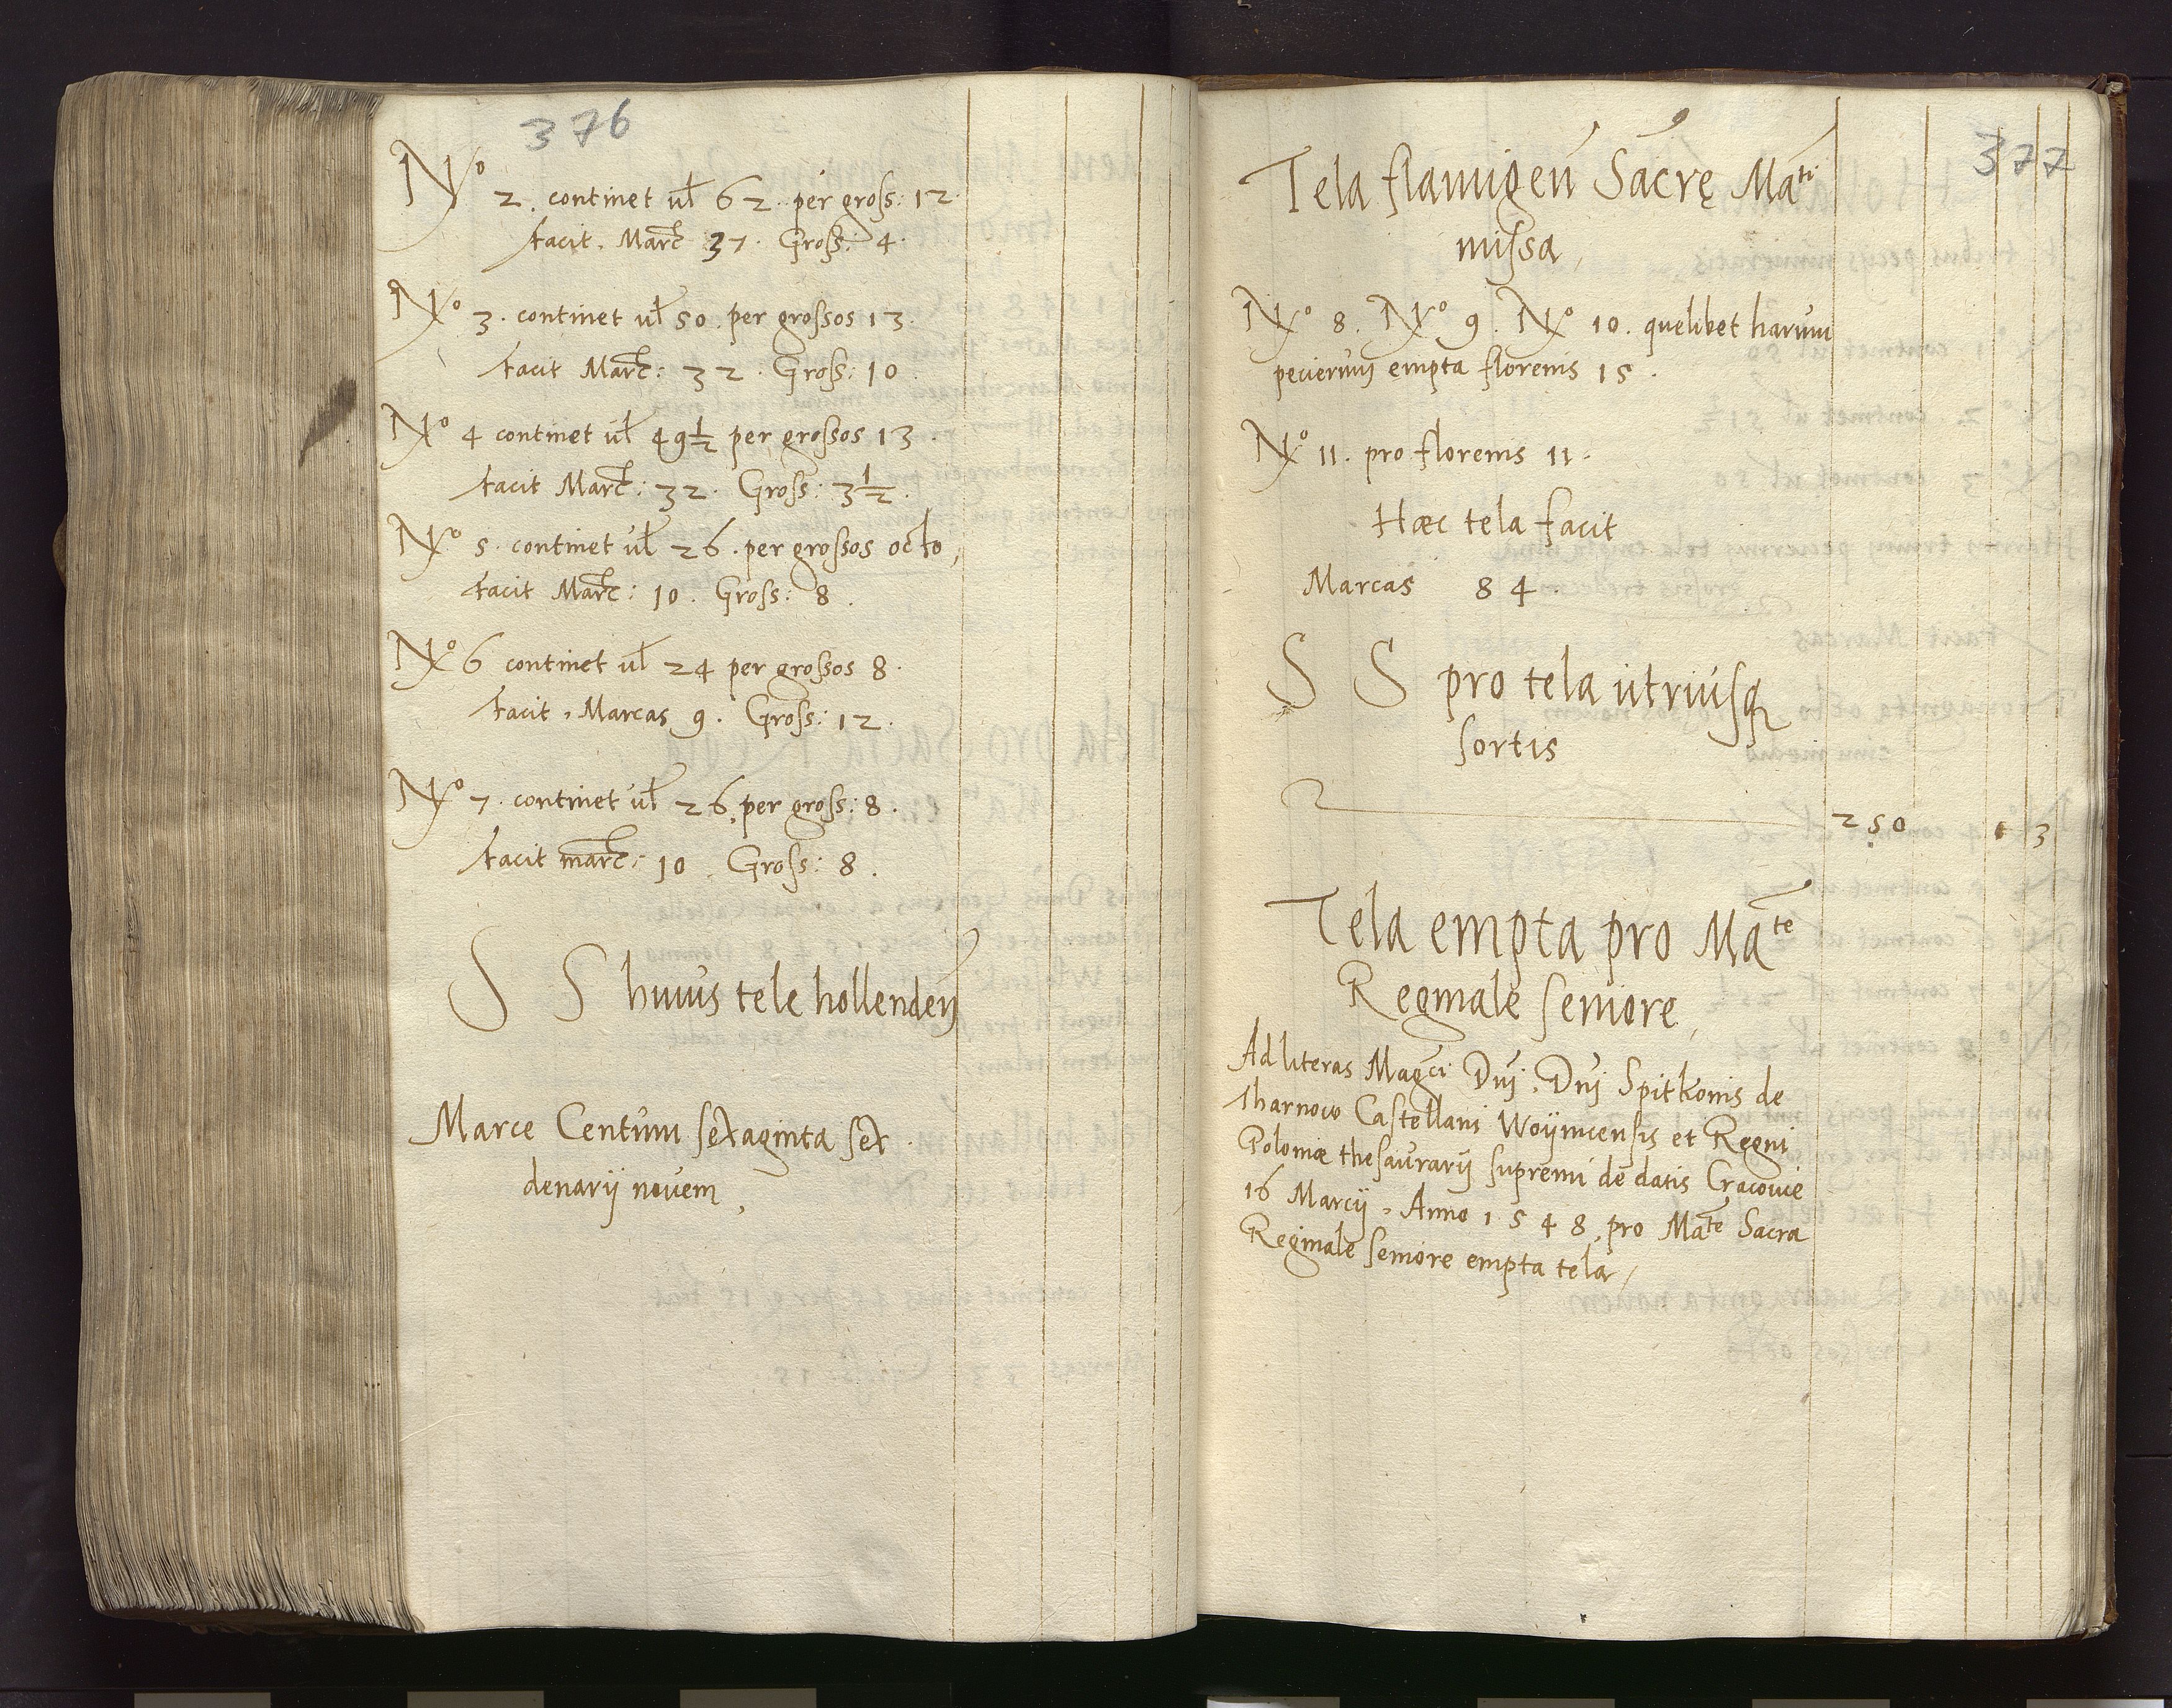 376
No 2. continet ul 62. per gross: 12.
facit. Marc 37. Gross: 4.
No 3. continet ul 50. per grossos 13.
facit Marc: 32. Gross: 10.
No 4 continet ul 49 1/2 per grossos 13.
facit Marc: 32. Gross: 3 1/2.
No 5. continet ul 26. per grossos octo,
facit Marc: 10. Gross: 8.
No 6 continet ul 24 per grossos 8.
facit, Marcas 9. Gross: 12.
No 7. continet ul 26. per gross: 8.
facit marc: 10. Gross: 8.
S S huius tele hollenden
Marce Centum sexaginta sex.
denarij novem,
377
Tela flamigen Sacrę Mati
missa,
No 8. No 9. No 10. quelibet harum
peciarum empta florenis 15.
No 11. pro florenis 11.
Hæc tela facit
Marcas 84.
S S pro tela utriusq
sortis
250 3
Tela empta pro Mate
Reginale seniore,
Ad literas Magci Dni, Dni Spitkonis de
Tharnow Castellani Woijnicensis et Regni
Poloniæ thesaurarij supremi de datis Cracovie
16 Marcij, Anno 1548, pro Mate Sacra
Reginale seniore empta tela,